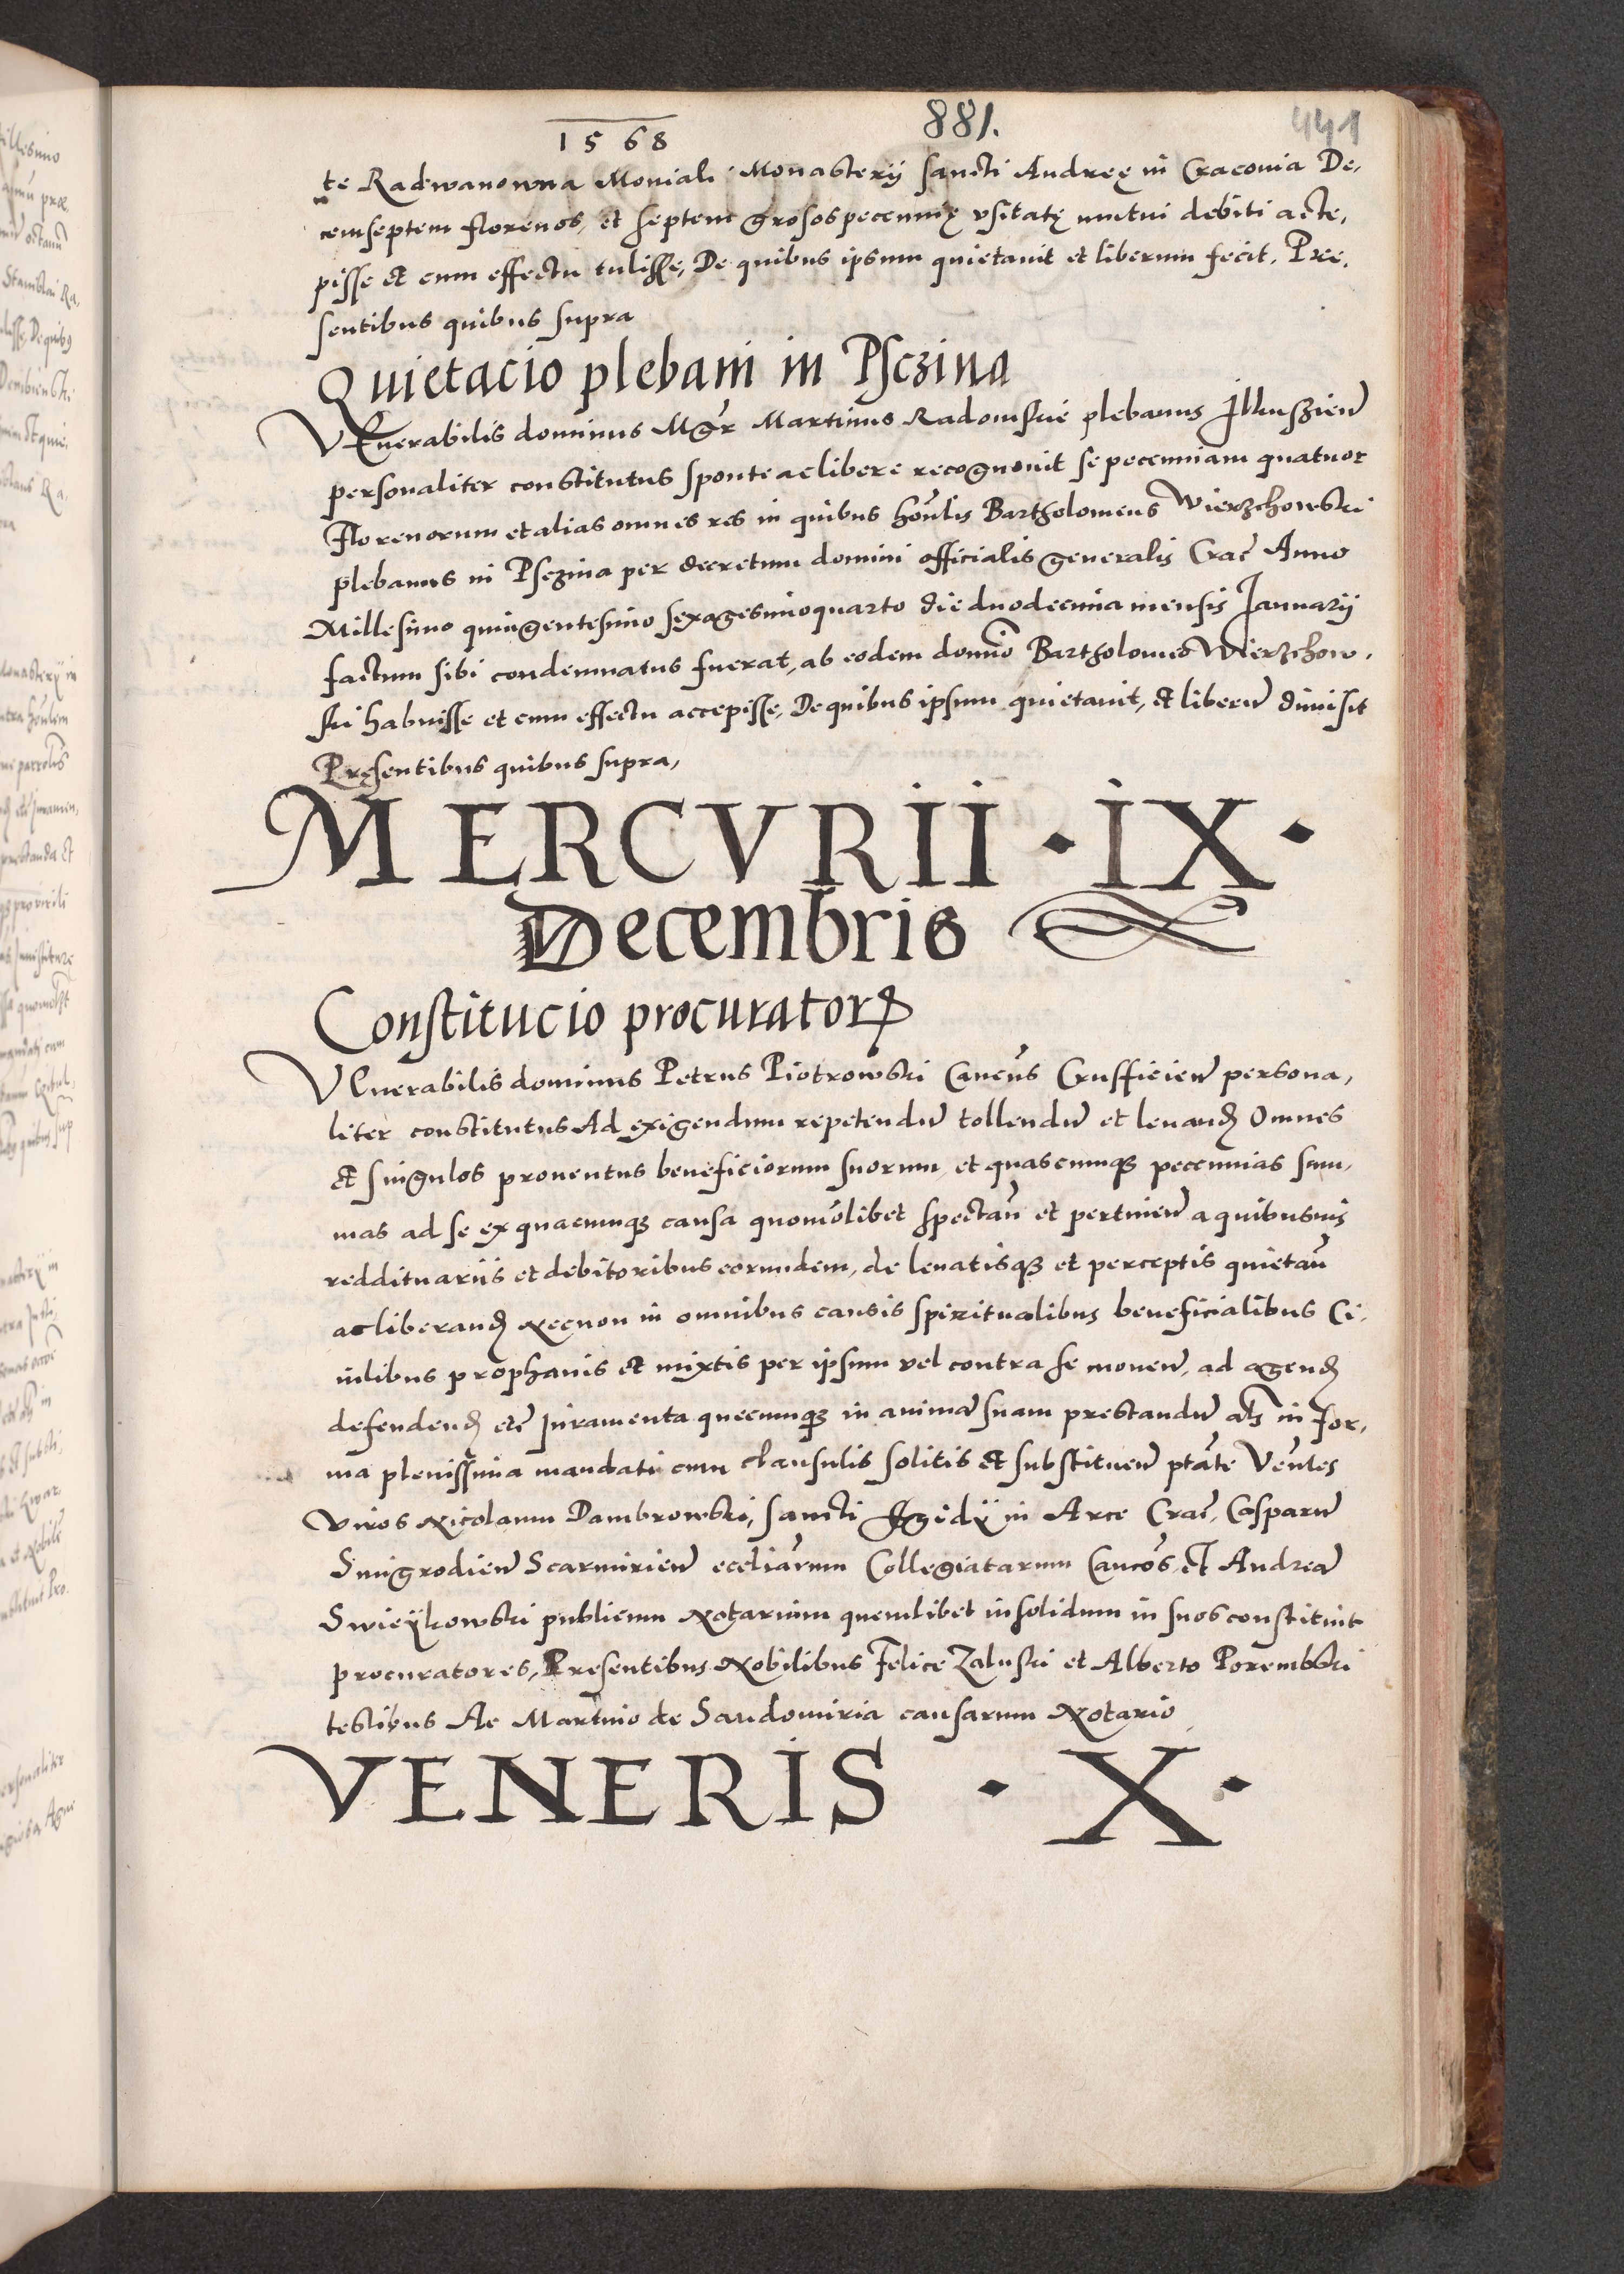 1568
881.
441
te Radwanowna Moniali Monasterij sancti Andreę in Cracouia De,
cemseptem florenos, et septem grosos pecunnię vsitatę mutui debiti acte,
pisse et cum effectu tulisse, De quibus ipsum quietauit et liberum fecit. Pree,
sentibus quibus supra
Quietacio plebani in Psczina
VEnerabilis dominus Mgr̄ Martinus Radomskie plebanus Illkuszien̄
personaliter constitutus sponte ac libere recognouit se pecunniam quatuor
florenorum et alias omnes res in quibus hon̄lis Bartholomeus Wierzchowski
plebanus in Psczina per decretum domini officialis generalis Crac̄ Anno
Millesimo quingentesimo sexagesimoquarto die duodecima mensis Januarij
factum sibi condemnatus fuerat, ab eodem domīo Bartholomeo Wierzchow,
ski habuisse et cum effectu accepisse, De quibus ipsum quietauit, et liberū dimisit
Pręsentibus quibus supra,
MERCVRII · IX ·
Decembris
Constitucio procuratorꝝ
VEnerabilis dominus Petrus Piotrowski Cancūs Crusficien̄ persona,
liter constitutus Ad exigendum repetendū tollendū et leuanđ Omnes
et singulos prouentus beneficiorum suorum, et quascumqꝫ pecunnias sum,
mas ad se ex quacumqꝫ causa quomōlibet spectan̄ et pertinen̄ a quibusuis
reddituariis et debitoribus eorumdem, de leuatisqꝫ et perceptis quietan̄
ac liberanđ Necnon in omnibus causis spiritualibus beneficialibus Ci,
uilibus prophanis et mixtis per ipsum vel contra se mouen̄, ad agenđ
defendenđ etc̄ Juramenta quecumqꝫ in animā suam prestandū als̄ in for,
ma plenissima mandati cum clausulis solitis et substituen̄ ptāte Ven̄les
viros Nicolaum Dambrowski, sancti Egidij in Arce Crac̄, Casparū
Smigrodien̄ Scarmirien̄ eccliārum Collegiatarum Cancōs, et Andreā
Swieÿkowski publicum Notarium quemlibet in solidum in suos constituit
procuratores, Presentibus Nobilibus Felice Zaluski et Alberto Porembski
testibus Ac Martino de Sandomiria causarum Notario
VENERIS · X ·